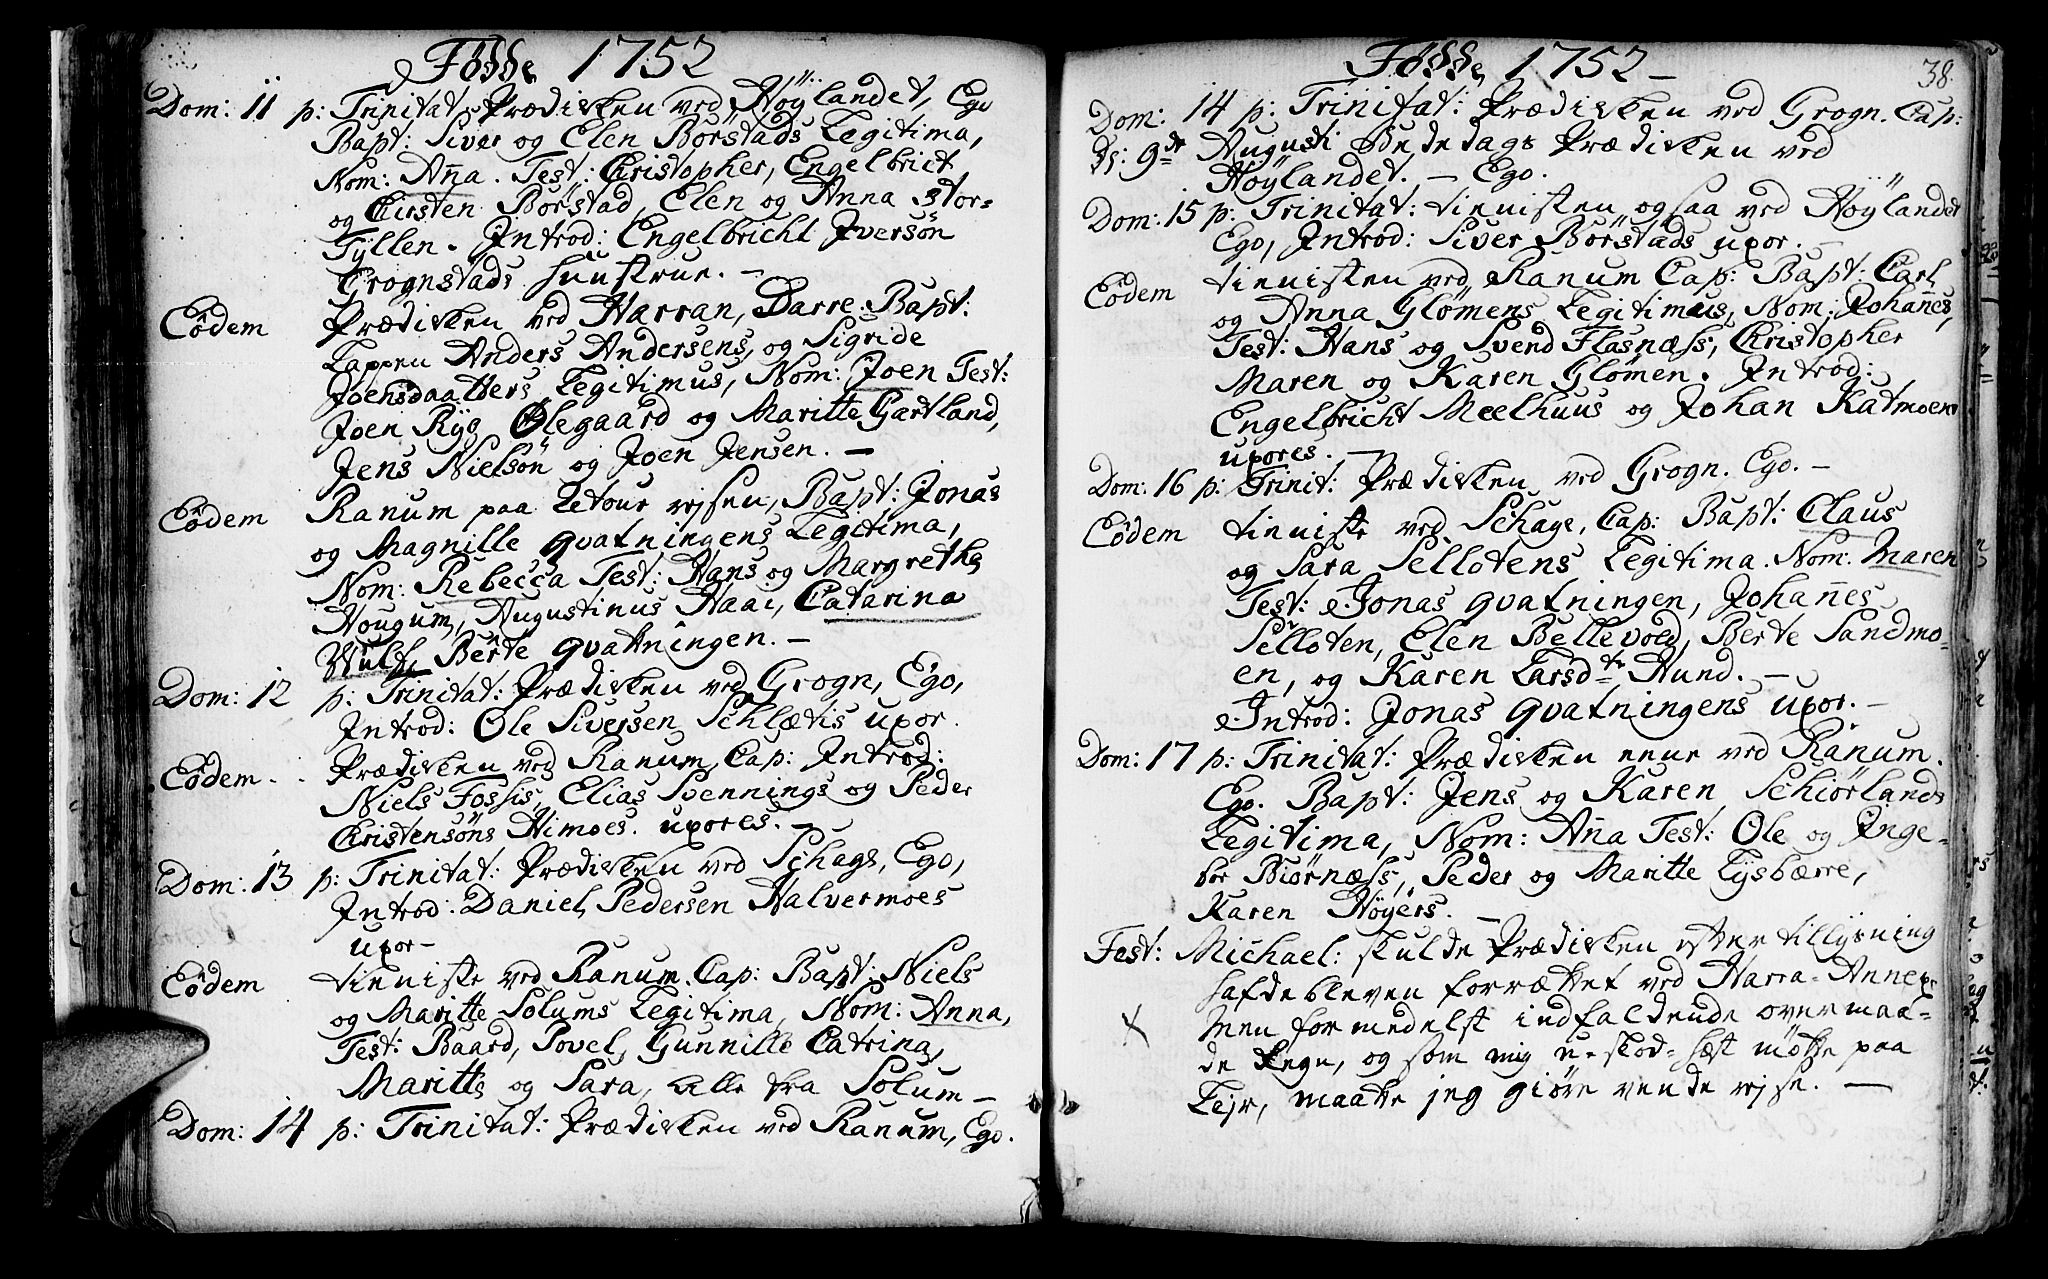 Fødde 1752
Dom: 11 p: Trinitat: Prædiken ved Höÿlandet, Ego
Bapt: Siver og Elen Borstads Legitima,
Nom: Aña. Test: Christopher, Engelbrict
og Chirsten Börstad, Elen og Anna Stor=
Tyllen. Introd: Engelbricht Iversön
Grognstads huustrue. —
Eodem Prædiken ved Harran, Darre. Bapt:
Lappen Anders Andersens, og Sigride
Joensdaatters Legitimus, Nom: Joen Test:
Joen Ryg, Olegaard og Maritte Gartland,
Jens Nielsön og Joen Jensen. —
Eodem Ranum paa Retour rejsen, Bapt: Jonas
og Magnille Qvatningens Legitima,
Nom: Rebecca Test: Hans og Margrethe
Hougum, Augustinus Haar, Catarina
Wulf, Berte Qvatningen. —
Dom: 12 p: Trinitat: Prædiken ved Grogn, Ego,
Introd: Ole Siversen Schlætis uxor.
Eodem. Prædiken ved Ranum, Cap: Introd:
Niels Fossis, Elias Svennings og Peder
Christensöns Himoes. uxores. —
Dom: 13 p: Trinitat: Prædiken ved Schage, Ego,
Introd: Daniel Pedersen Halvermoes
uxor —
Eodem tieniste ved Ranum. Cap: Bapt: Niels
og Maritte Solums Legitima, Nom: Anna,
Test: Baard, Povel, Gunnille Catrina,
Maritte og Sara, alle fra Solum —
Dom: 14 p: Trinitat: Prædiken ved Ranum, Ego.
Fødde 1752 —
38.
Dom: 14 p: Trinitat: Prædiken ved Grogn. Cap:
D: 9de Augusti Bededags Prædiken ved
Höÿlandet. — Ego.
Dom: 15 p: Trinitat: tienisten ogsaa ved Höÿlandet
Ego, Introd: Siver Borstads uxor. —
Eodem tienisten ved Ranum Cap: Bapt: Carl
og Anna Glömens Legitimus, Nom: Johañes,
Test: Hans og Svend Flasnæss, Christopher
Maren og Karen Glömen. Introd:
Engelbricht Meelhuus og Johan Katmoens
uxores. —
Dom: 16 p: Trinit: Prædiken ved Grogn. Ego. —
Eodem tieniste ved Schage, Cap: Bapt: Claus
og Sara Sellotens Legitima. Nom: Maren
Test: Jonas Qvatningen, Johañes
Selloten, Elen Bellevold, Berte Sandmo=
en, og Karen Larsdtr Hund. —
Introd: Jonas Qvatningens uxor. —
Dom: 17 p: Trinitat: Prædiken eene ved Ranum.
Ego. Bapt: Jens og Karen Schiörlands
Legitima, Nom: Aña Test: Ole og Inge=
bor Biörnæss, Peder og Maritte Lysbærre,
Karen Höyers. —
Fest: Michael: skulde Prædiken efter tillysning
hafde bleven forrættet ved Harra=Annexe
X men formedelst indfaldende overmaa=
de Regn, og som mig u=skod=hæst mötte paa
Lejr, maatte jeg giöre vende rejse. —